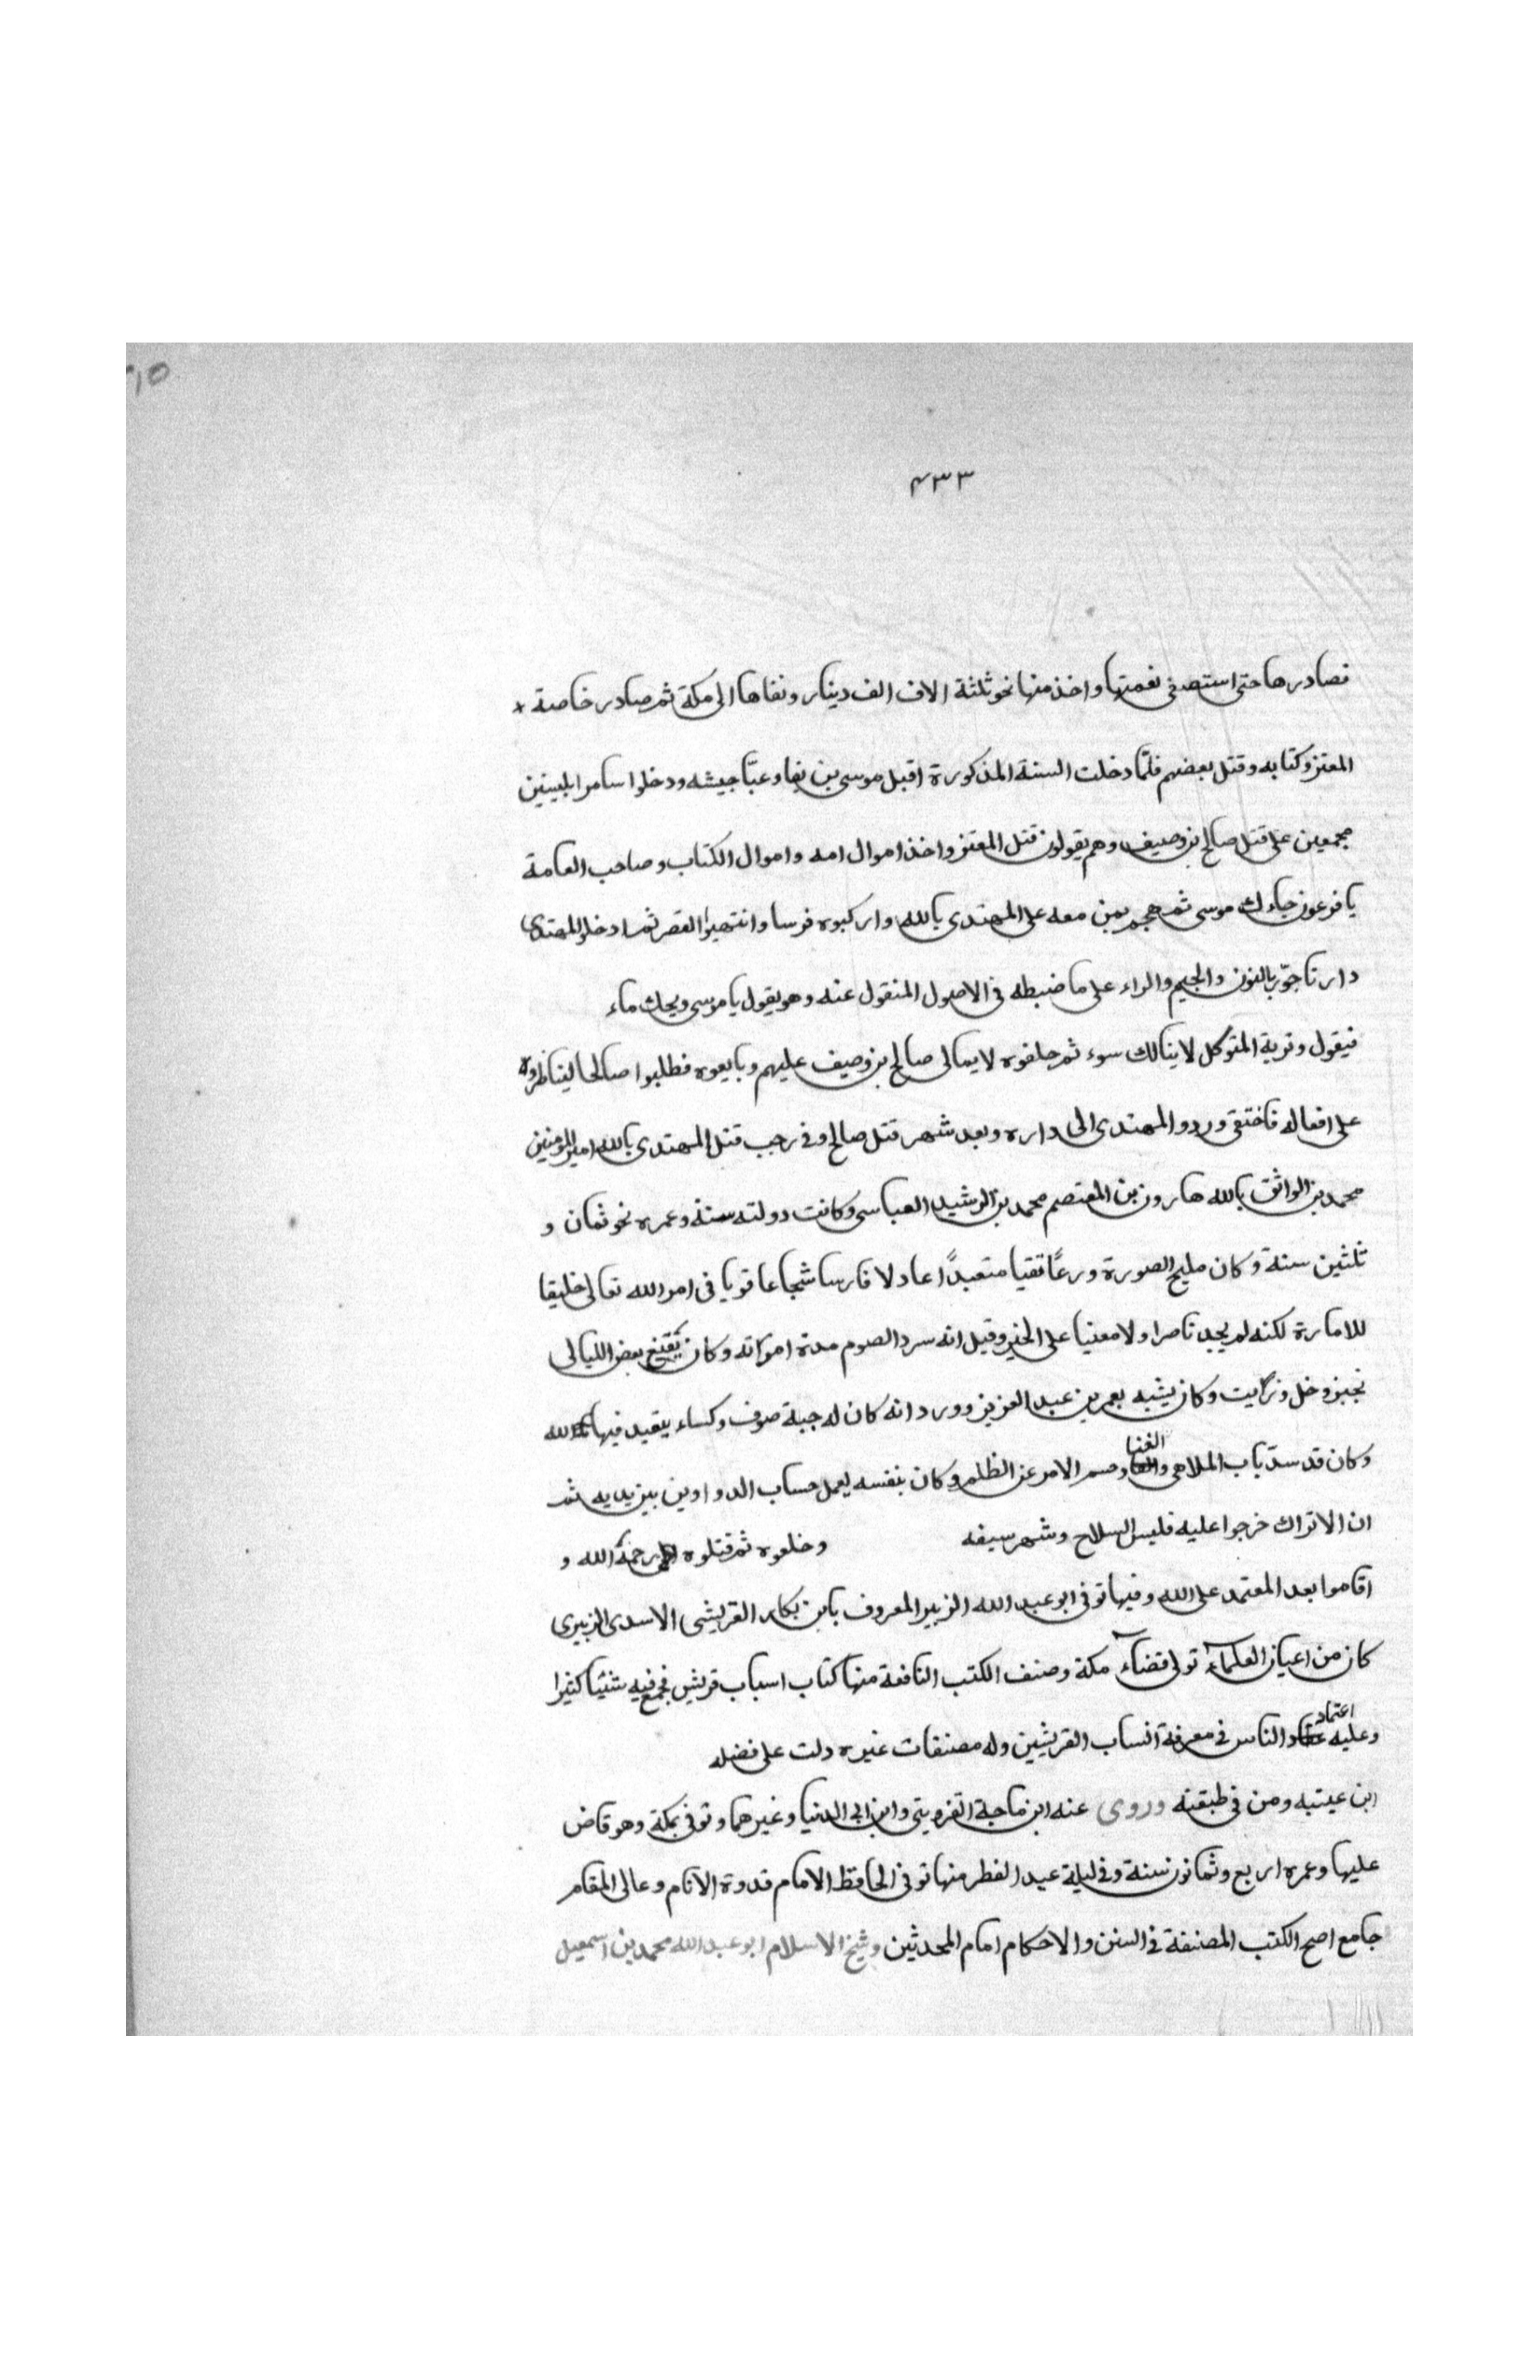 ٤٣٣
فصادرها حتى استصفى نعمتها واخذ منها نحو ثلثة الاف الف دينار ونفاها الى مكة ثم صادر خاصة
المعتز وكتابه وقتل بعضهم فلمّا دخلت السنة المذكورة اقبل موسى بن بغا وعبّا جيشه ودخلوا سامرا ملبسين
مجمعين على قتل صالح بن وصيف وهم يقولون قتل المعتز واخذ اموال امه واموال الكتاب وصاحب العامة
يا فرعون جاءك موسى ثم هجم بمن معه على المهتدى بالله واركبوه فرسا وانتهبوا القصر ثم ادخلوا المهتدى
دار ناجوّر بالنون والجيم والراء على ما ضبطه فى الاصول المنقول عنه وهو يقول يا موسى ويحك ماء
فيقول وتربة المتوكل لا ينالك سوء ثم حلفوه لا يمالى صالح بن وصيف عليهم وبايعوه فطلبوا صالحا ليناظروه
على افعاله فاختفى وردو المهتدى الى داره وبعد شهر قتل صالح وفى رجب قتل المهتدى بالله امير المومنين
محمد بن الواثق بالله هارون بن المعتصم محمد بن الرشيد العباسى وكانت دولته سنة وعمره نحو ثمان و
ثلثين سنة وكان مليح الصورة ورعًا تقيا متعبدًا عادلا فارسا شجاعا قويا فى امر الله تعالى خليقا
للامارة لكنه لم يجد ناصرا ولا معنيا على الخير وقيل انه سرد الصوم مدة امرته وكان يقتنع بعض الليالى
بخبز وخل وزايت وكان يشبه بعمر بن عبد العزيز وورد انه كان له جبة صوف وكساء يتعبد فيها لله
وكان قد سدّ باب الملاهى والغنا وحسم الامر عن الظلم وكان بنفسه يعمل حساب الدواوين بين يديه ثم
ان الاتراك خرجوا عليه فلبس السلاح وشهر سيفه وخلعوه ثم قتلوه رحمة الله و
اقاموا بعد المعتمد على الله وفيها توفى ابو عبد الله الزبير المعروف بابن بكار القريشى الاسدى الزبيرى
كان من اعيان العلماء تولى قضاء مكة وصنف الكتب النافعة منها كتاب اسباب قريش فجمع فيه شئيا كثيرا
وعليه اعتماد الناس فى معرفة انساب القريشين وله مصنفات غيره دلت على فضله
ابن عيتبه ومن فى طبقته وروى عنه ابن ماجة القزوينى وابن ابى الدنيا وغيرهما وتوفى بمكة وهو قاض
عليها وعمره اربع وثمانون سنة وفى ليلة عيد الفطر منها توفى الحافظ الامام قدوة الانام وعالى المقام
جامع اصح الكتب المصنفة فى السنن والاحكام امام المحدثين وشيخ الاسلام ابو عبد الله محمد بن اسمعيل